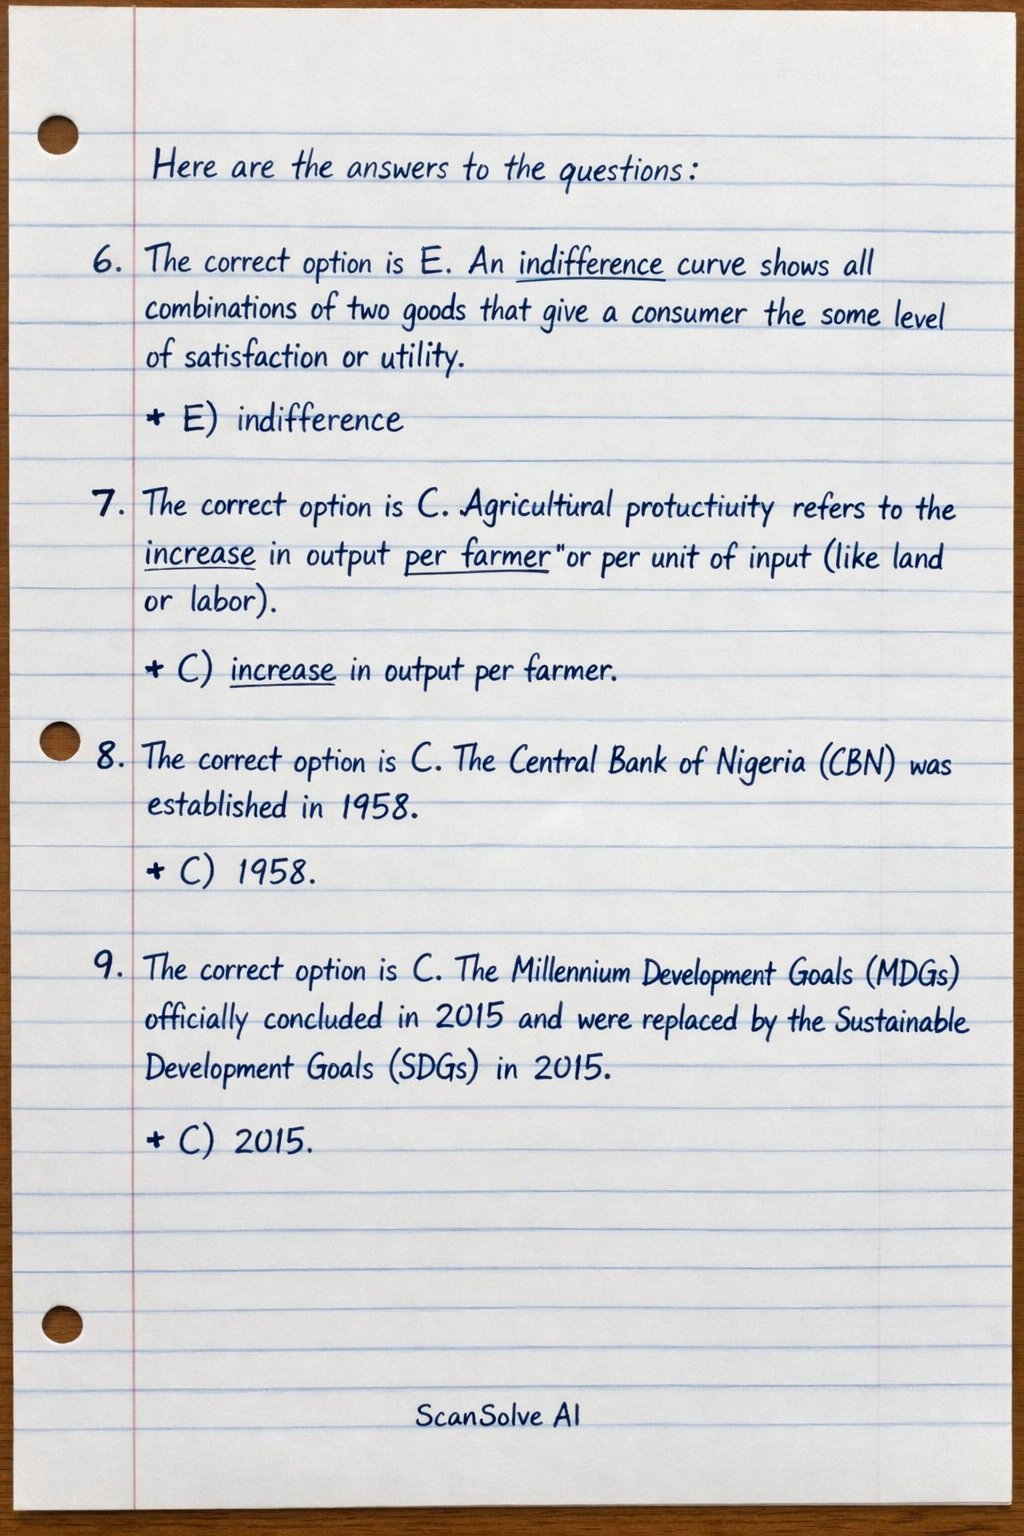 Here are the answers to the questions:
6. The correct option is E. An indifference curve shows all
combinations of two goods that give a consumer the some level
of satisfaction or utility.
* E) indifference
7. The correct option is C. Agricultural protuctiuity refers to the
increase in output per farmer" or per unit of input (like land
or labor).
* C) increase in output per farmer.
8. The correct option is C. The Central Bank of Nigeria (CBN) was
established in 1958.
* C) 1958.
9. The correct option is C. The Millennium Development Goals (MDGs)
officially concluded in 2015 and were replaced by the Sustainable
Development Goals (SDGs) in 2015.
* C) 2015.
ScanSolve AI